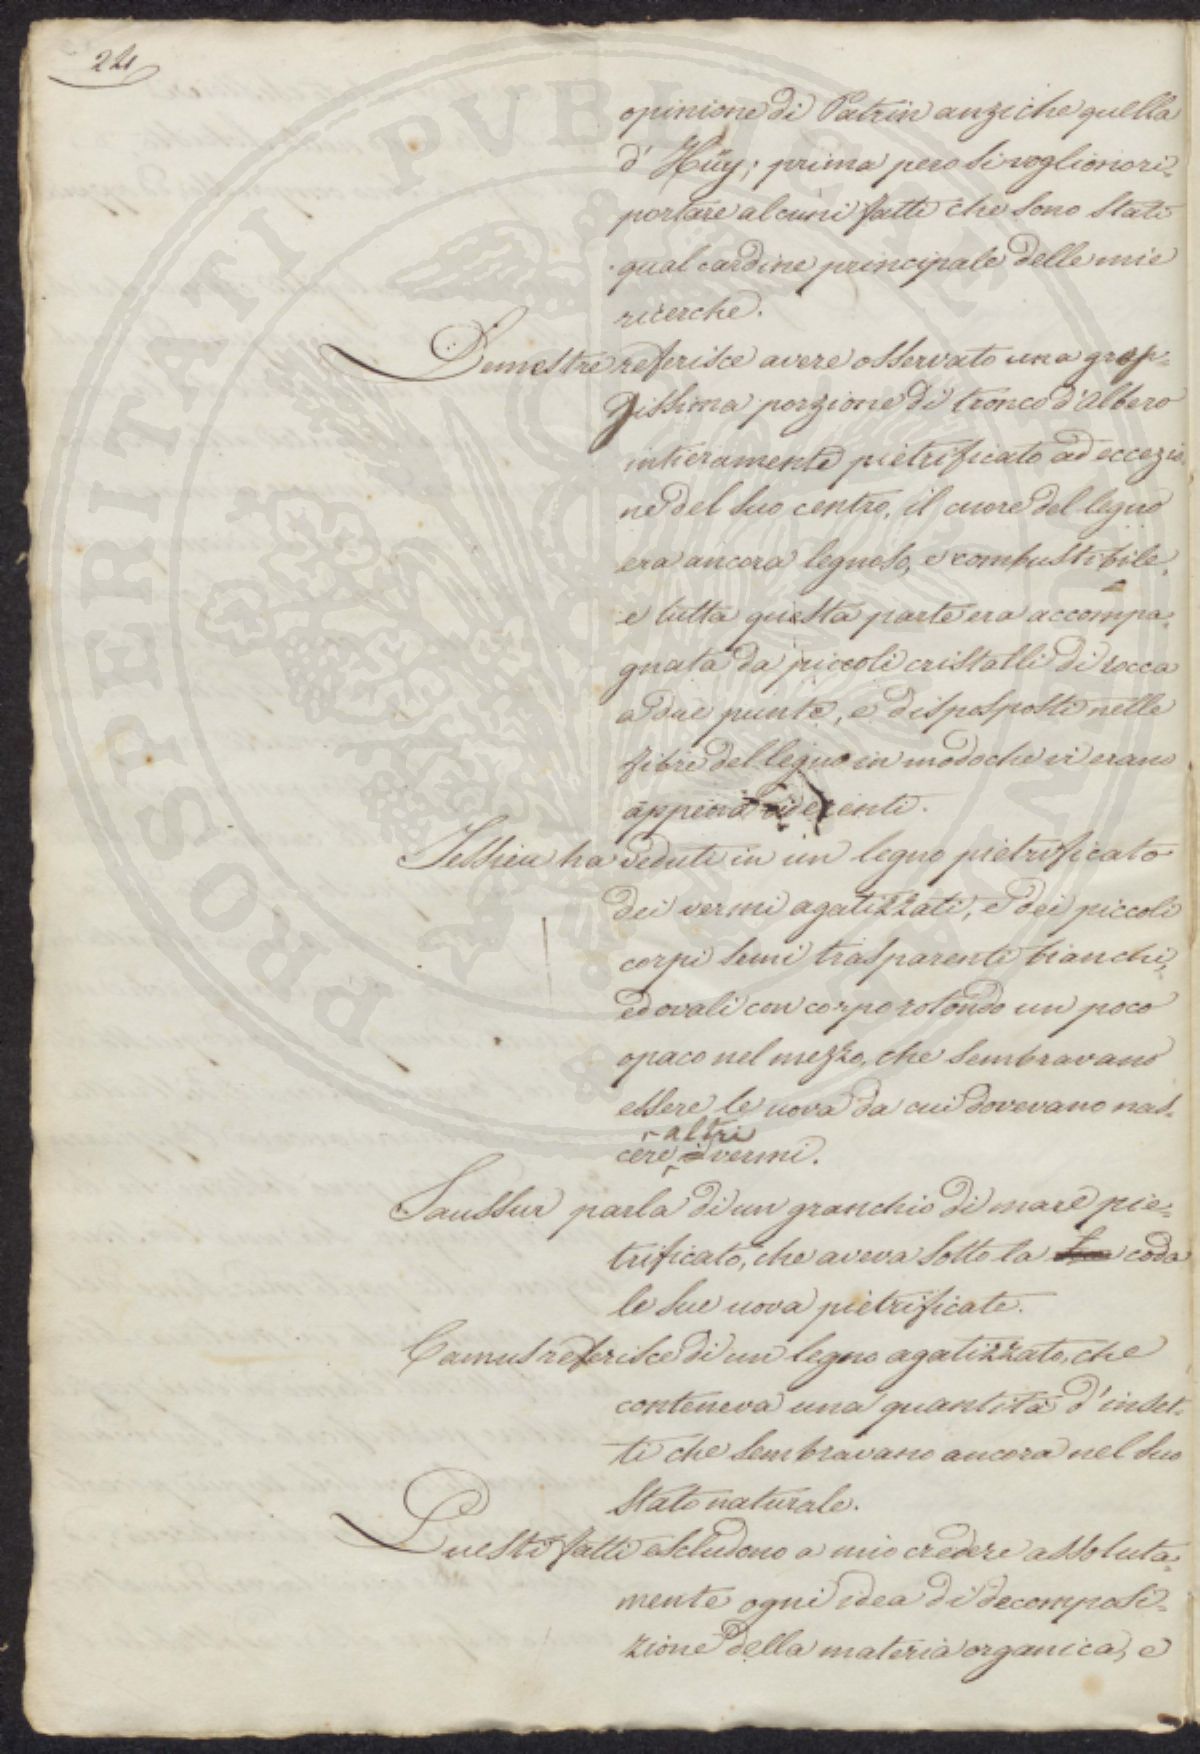 24
opinione di Patrin anziche quella
d' Haüy; prima pero si vogliono ri-
portare alcuni fatti che sono stati
qual cardine principale delle mie
ricerche.
Demestre referisce avere osservato una gros-
sissima porzione di tronco d'albero
intieramente pietrificato ad eccezio-
ne del suo centro, il cuore del legno
era ancora legnoso, e combustibile,
e tutta questa parte era accompa-
gnata da piccoli cristalli di rocca
a due punte, e dispsposti nelle
fibre del legno in modo che vi erano
appena aderenti.
Jessieu ha veduti in un legno pietrificato
dei vermi agatizzati, e dei piccoli
corpi semi trasparenti bianchi,
ed ovali con corpo rotondo un poco
opaco nel mezzo, che sembravano
essere le uova da cui dovevano nas-
altri
cere vermi.
Saussur parla di un granchio di mare pie-
trificato, che aveva sotto la sua coda
le sue uova pietrificate.
Camus referisce di un legno agatizzato, che
conteneva una quantità d'inset-
ti che sembravano ancora nel suo
stato naturale.
Questi fatti escludono a mio credere assoluta-
mente ogni idea di decomposi-
zione della materia organica, e
PROSPERITATI PVBLICAE